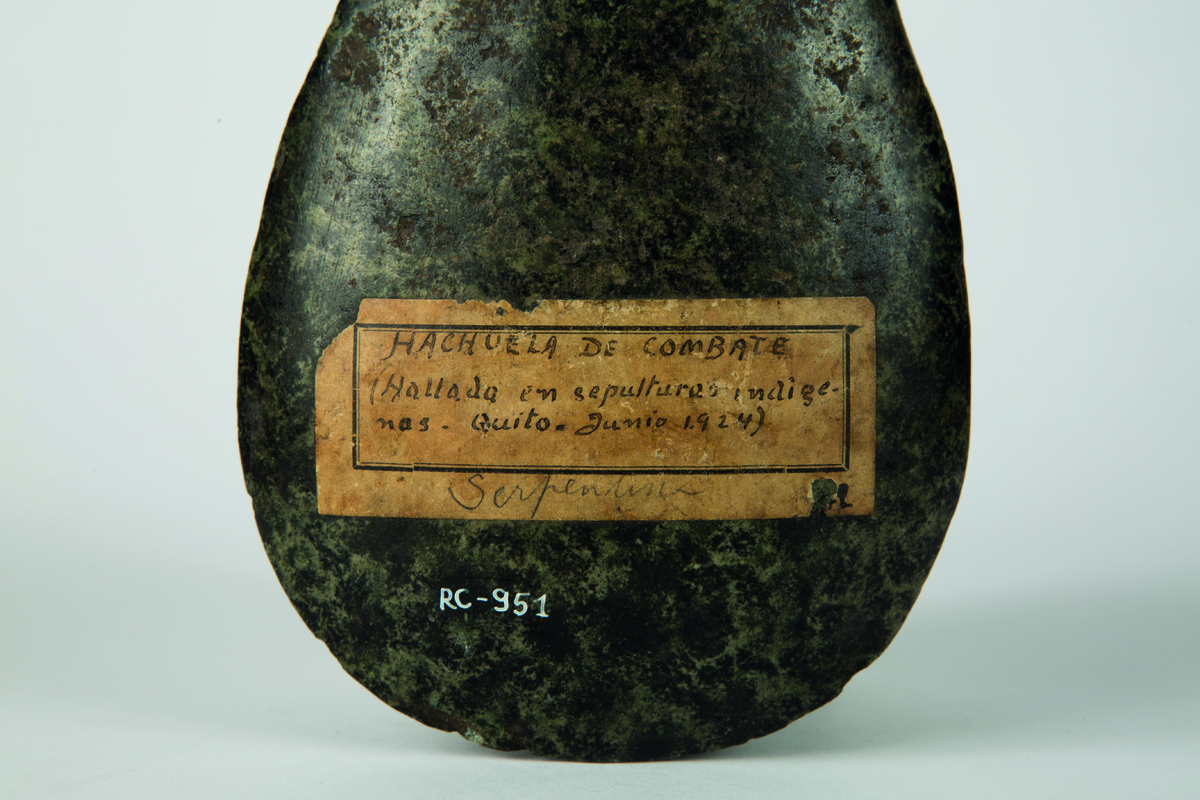 HACHUELA DE COMBATE
(Hallada en sepulturas indíge-
nas. Quito. Junio 1924)
Serpentina
RC-951